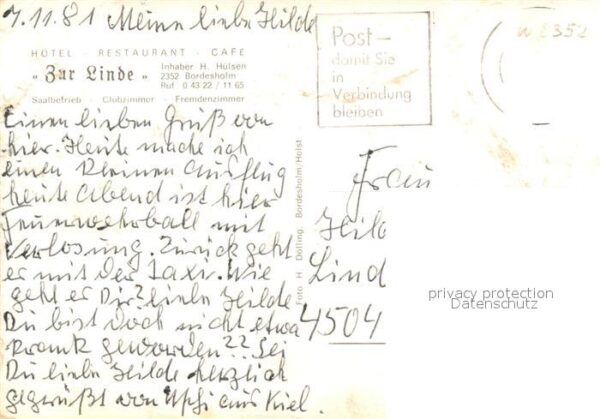 7.11.81 Meine liebe Hilde
HOTEL - RESTAURANT - CAFE
"Zur Linde"
Inhaber H. Hülsen
2352 Bordesholm
Ruf 0 43 22 / 11 65
Saalbetrieb - Clubzimmer - Fremdenzimmer
Einen lieben Gruß von
hier. Heute mache ich
einen kleinen Ausflug
heute Abend ist hier
Feuerwehrball mit
Verlosung. Zurück geht
er mit der Taxi. Wie
geht er Dir? liebe Hilde
Du bist doch nicht etwa
krank geworden?? Sei
Du liebe Hilde herzlich
gegrüßt von Uschi aus Kiel.
Foto H. Dölling, Bordesholm/Holst.
Post -
damit Sie
in
Verbindung
bleiben
W 2352
Frau
Hild
Lind
4504
privacy protection
Datenschutz